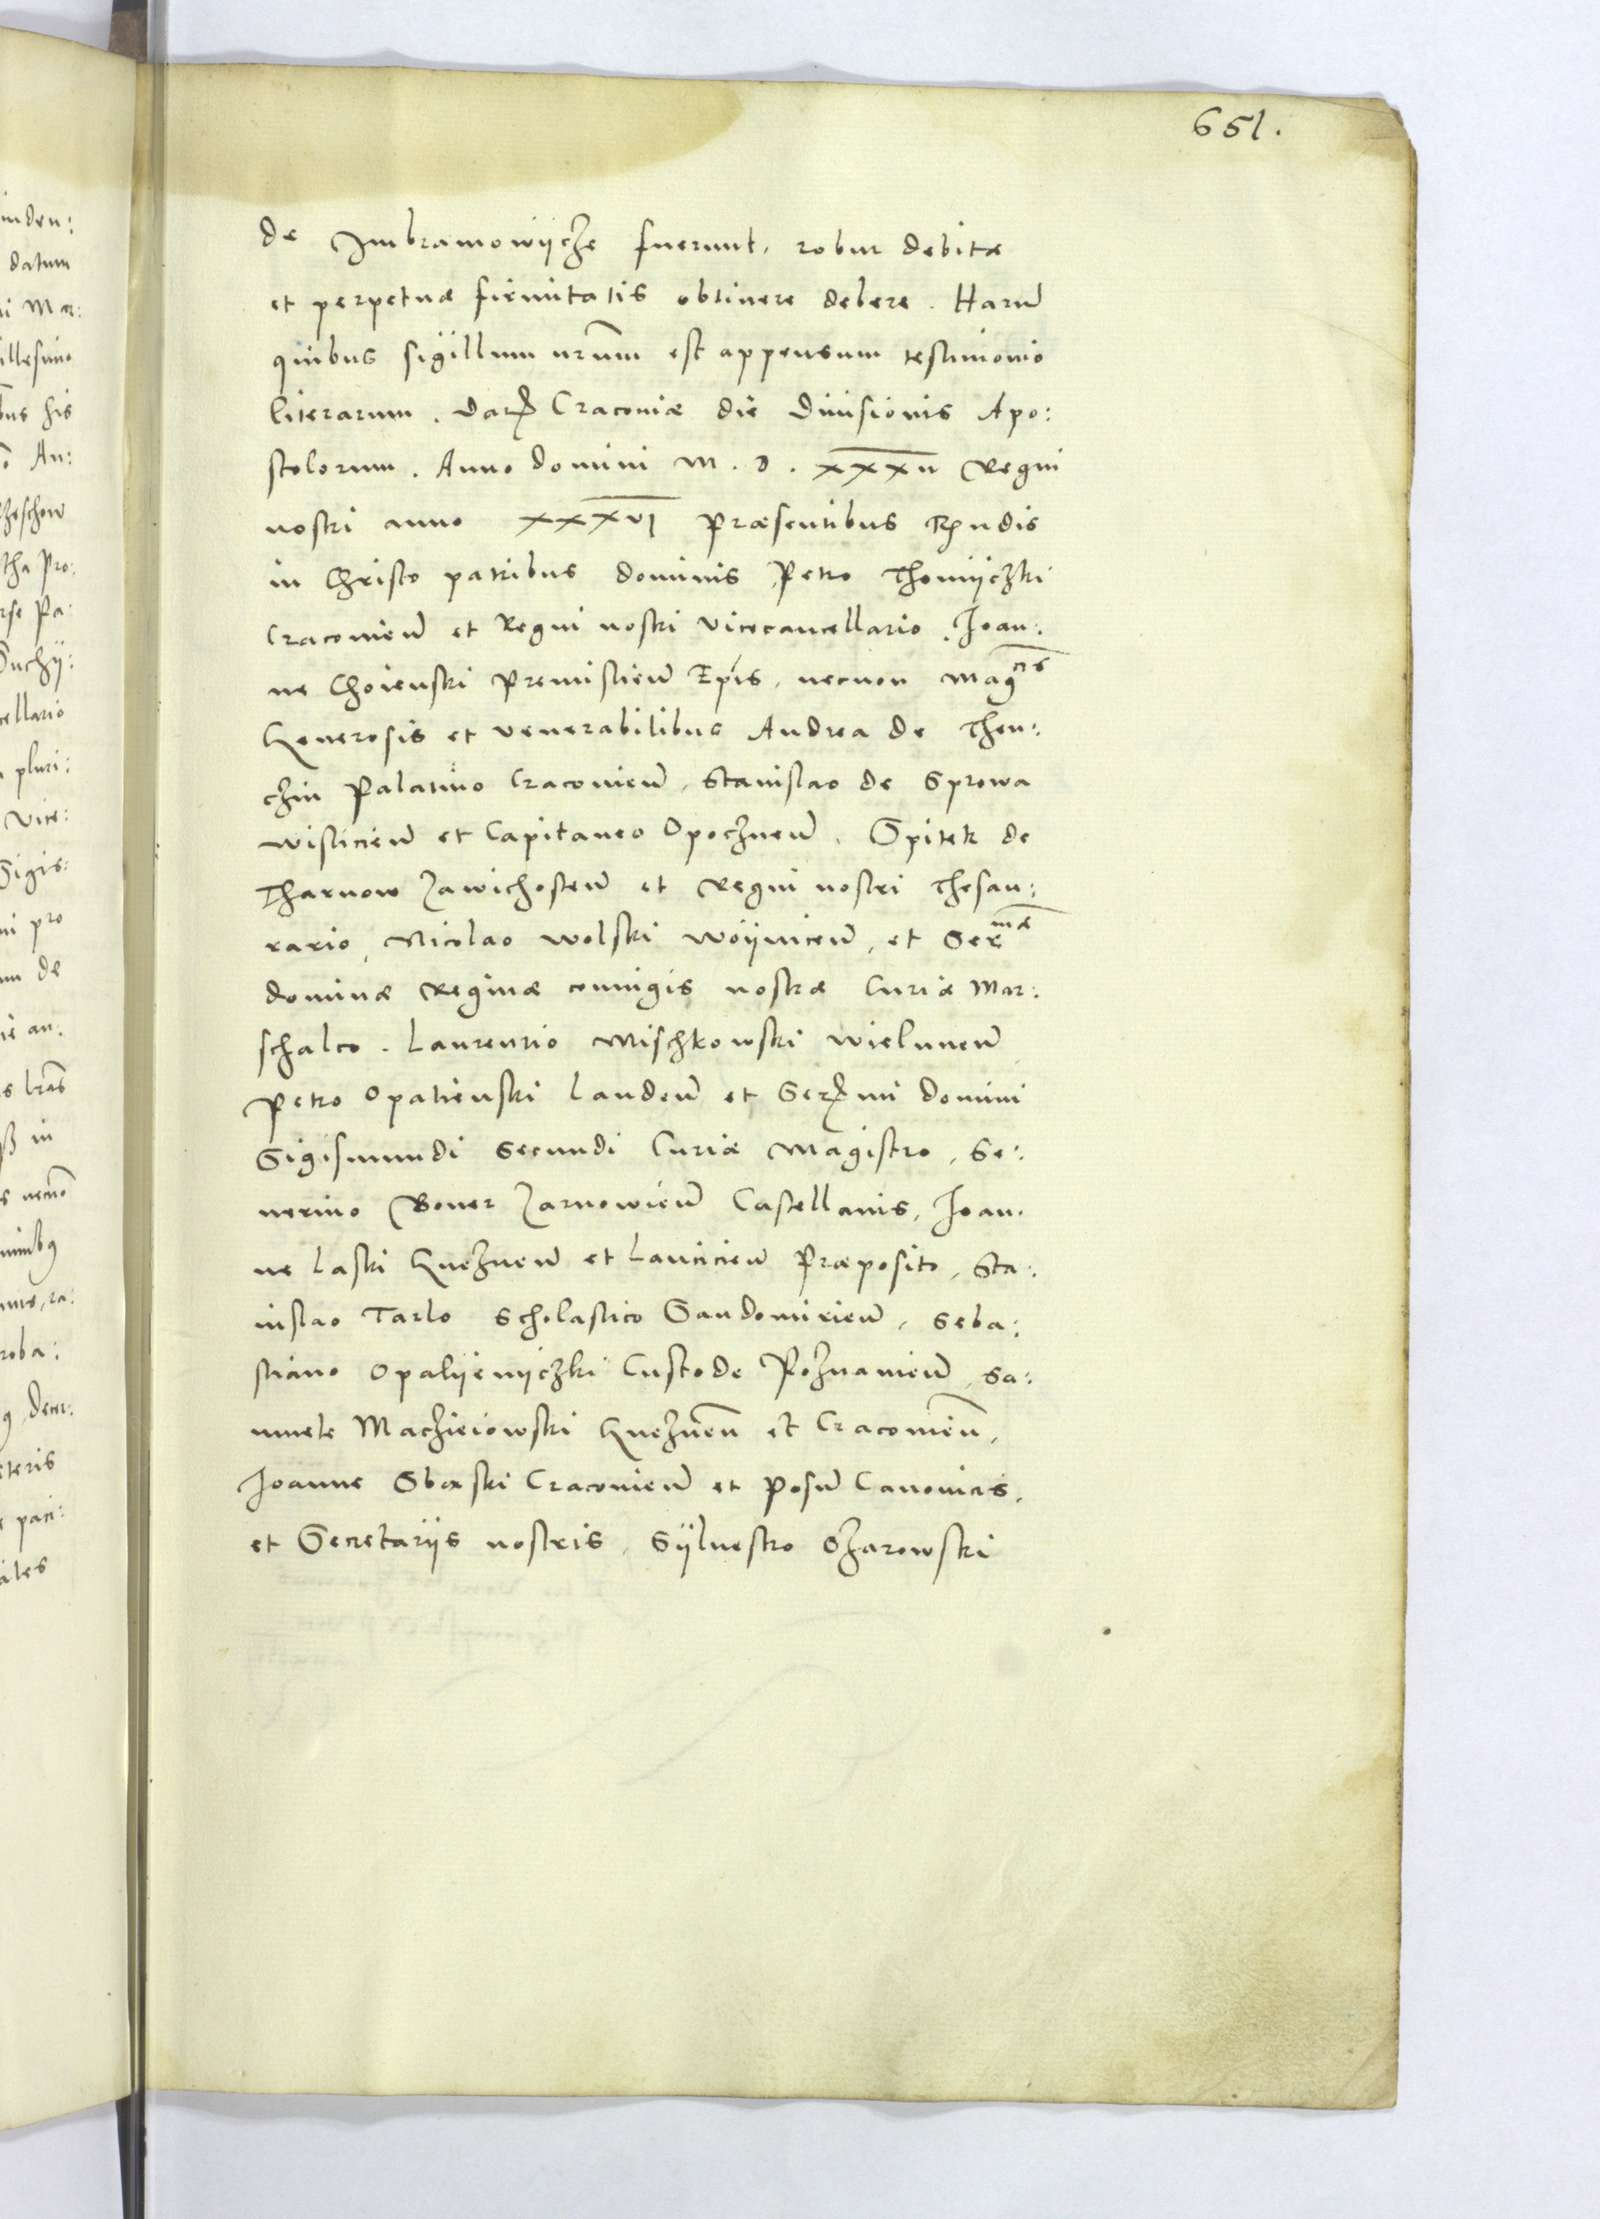 651.
de Imbramowijcze fuerunt, robur debitæ
et perpetuæ firmitatis obtinere debere. Harū
quibus sigillum nr̄um est appensum testimonio
literarum. Dat. Cracoviæ die Divisionis Apo:
stolorum. Anno domini M. D. XXXII Regni
nostri anno XXXVI Præsentibus Rndis
in Christo patribus dominis Petro Thomijczki
Cracovieñ et Regni nostri Vicecancellario. Ioan:
ne Choienski Premislieñ Ep̄is, necnon Mag.cis
Generosis et venerabilibus Andrea de Then:
czin Palatino Cracovieñ, Stanislao de Sprowa
Wislicieñ et Capitaneo Opoczneñ. Spitek de
Tharnow Zawichosteñ et Regni nostri Thesau:
rario, Nicolao Wolski Woijniceñ, et Ser.mæ
dominæ Reginæ coniugis nostræ Curiæ Mar:
schalco. Laurentio Mischkowski Wieluneñ
Petro Opalienski Landeñ et Sermi domini
Sigismundi Secundi Curiæ Magistro, Se:
uerino Boner Zarnowieñ Castellanis, Ioan:
ne Laski Gnezneñ et Lancicieñ Præposito, Sta:
nislao Tarlo Scholastico Sandomirieñ, Seba:
stiano Opalijenijczki Custode Poznanieñ, Sa:
muele Maczieiowski Gnezneñ et Cracovieñ,
Ioanne Sbæski Cracovieñ et Posñ Canonicis,
et Secretarijs nostris, Sijluestro Ozarowski